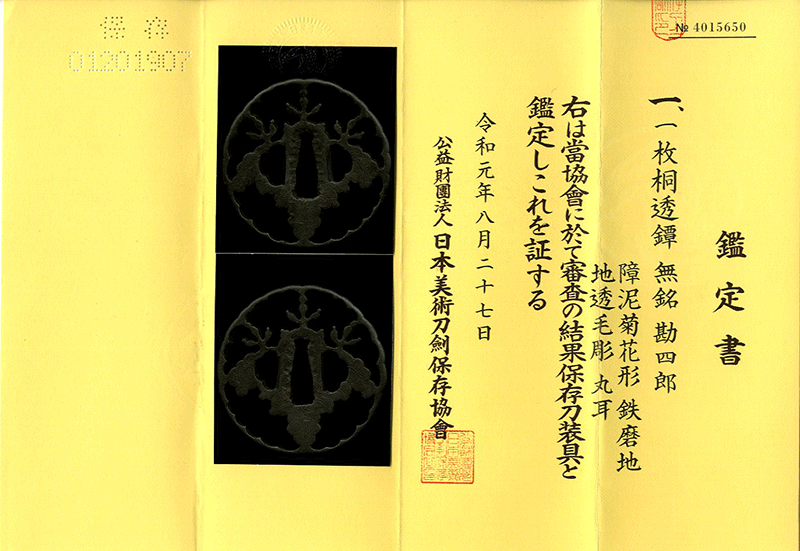 鑑定書
№ 4015650
一、一枚桐透鐔 無銘 勘四郎
障泥菊花形 鉄磨地
地透毛彫 丸耳
右は當協會に於て審査の結果保存刀装具と
鑑定しこれを証する
令和元年八月二十七日
公益財團法人 日本美術刀劍保存協會
保存
01201907